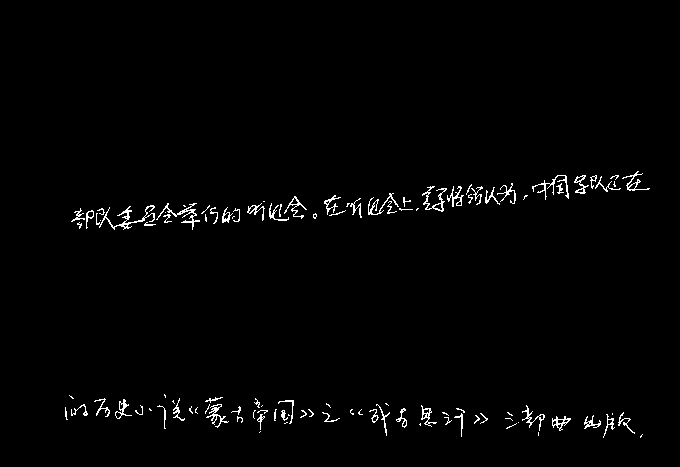 部队委员会举行的听证会。在听证会上,李将领认为,中国军队正在
的历史小说《蒙古帝国》之《成吉思汗》三部曲出版,